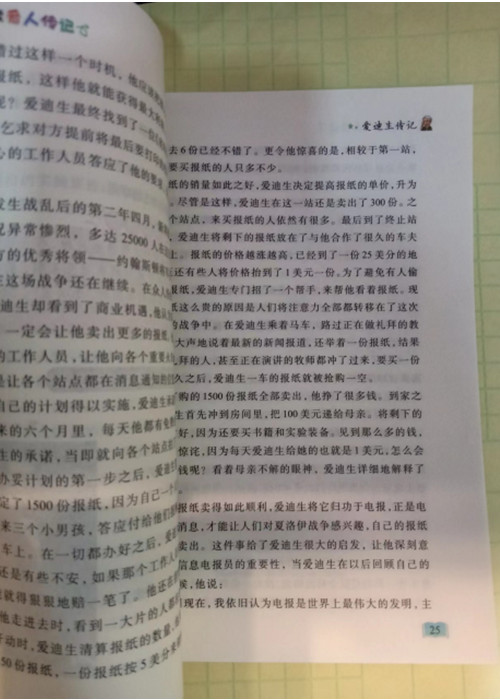 名人传记
错过这样一个时机，他应
报纸，这样他就能获得最大
呢？爱迪生最终找到了一
乞求对方提前将最后要打
心的工作人员答应了他的要求
发生战乱后的第二年四月，
况异常惨烈，多达25000人
方的优秀将领——约翰斯顿
这场战争还在继续。在众人
迪生却看到了商业机遇，他
一定会让他卖出更多的报纸
的工作人员，让他向各个重要
是让各个站点都在消息通知的
自己的计划得以实施，爱迪生
来的六个月里，每天他都有免
生的承诺，当即就向各个站点
办妥计划的第一步之后，爱迪
定了1500份报纸，因为自己一个
来三个小男孩，答应付给他们
车上。在一切都办好之后，爱
还是有些不安，如果那个工作人
就得狠狠地赔一笔了。他还在
他走进去时，看到一大片的人
动时，爱迪生清算报纸的数量，
50份报纸，一份报纸按5美分来
爱迪生传记
去6份已经不错了。更令他惊喜的是，相较于第一站，
要买报纸的人只多不少。
纸的销量如此之好，爱迪生决定提高报纸的单价，升为
。尽管是这样，爱迪生在这一站还是卖出了300份。之
个站点，来买报纸的人依然有很多。最后到了终止站
，爱迪生将剩下的报纸放在了与他合作了很久的车夫
上。报纸的价格越涨越高，已经到了一份25美分的地
还有些人将价格抬到了1美元一份。为了避免有人偷
报纸，爱迪生专门招了一个帮手，来帮他看着报纸。现
纸这么贵的原因是人们将注意力全部都转移在了这次
的战争中。在爱迪生乘着马车，路过正在做礼拜的教
大声地说着最新的新闻报道，还举着一份报纸，结果
拜的人，甚至正在演讲的牧师都冲了过来，要买一份
久之后，爱迪生一车的报纸就被抢购一空。
购的1500份报纸全部卖出，他挣了很多钱。到家之
生首先冲到房间里，把100美元递给母亲。将剩下的
好，因为还要买书籍和实验装备。见到那么多的钱，
惊诧，因为每天爱迪生给她的也就是1美元，怎么会
钱呢？看着母亲不解的眼神，爱迪生详细地解释了
。
报纸卖得如此顺利，爱迪生将它归功于电报，正是电
消息，才能让人们对夏洛伊战争感兴趣，自己的报纸
卖出。这件事给了爱迪生很大的启发，让他深刻意
信息电报员的重要性，当爱迪生在以后回顾自己的
候，他说：
到现在，我依旧认为电报是世界上最伟大的发明，主
25